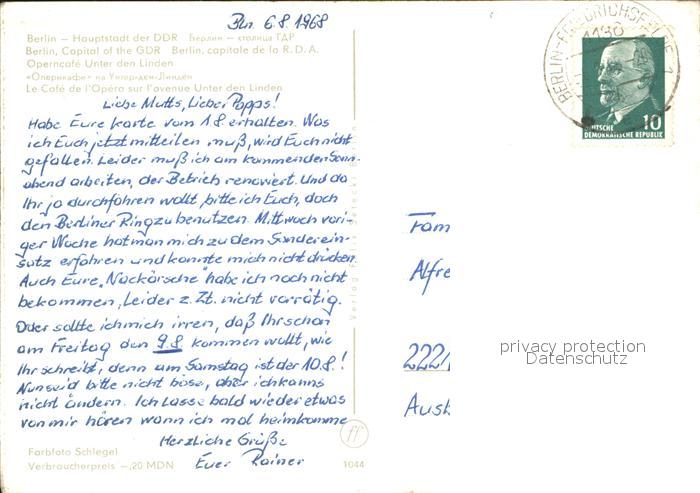 Bln 6.8.1968
Berlin – Hauptstadt der DDR Берлин – столица ГДР
Berlin, Capital of the GDR Berlin, capitale de la R.D.A.
Operncafé Unter den Linden
«Оперикафе» на Унтер-ден-Линден
Le Café de l'Opéra sur l'avenue Unter den Linden
Liebe Mutts, Lieber Papps!
Habe Eure Karte vom 1.8. erhalten. Was
ich Euch jetzt mitteilen muß, wird Euch nicht
gefallen. Leider muß ich am kommenden Sonn-
abend arbeiten, der Betrieb renoviert. Und da
Ihr ja durchfahren wollt, bitte ich Euch, doch
den Berliner Ring zu benutzen. Mittwoch vori-
ger Woche hat man mich zu dem Sonderein-
satz erfahren und konnte mich nicht drücken.
Auch Eure „Nackärsche" habe ich noch nicht
bekommen, Leider z. Zt. nicht vorrätig.
Oder sollte ich mich irren, daß Ihr schon
am Freitag den 9.8 kommen wollt, wie
Ihr schreibt, denn am Samstag ist der 10.8.!
Nun seid bitte nicht böse, aber ich kanns
nicht ändern. Ich lasse bald wieder etwas
von mir hören wann ich mal heimkomme
Herzliche Grüße
Euer Rainer
Farbfoto Schlegel
Verbraucherpreis –,20 MDN
1044
ff
Verlag
BERLIN-FRIEDRICHSFELDE 1
1136
10
DEUTSCHE
DEMOKRATISCHE REPUBLIK
Fam
Alfre
222
Aust
privacy protection
Datenschutz